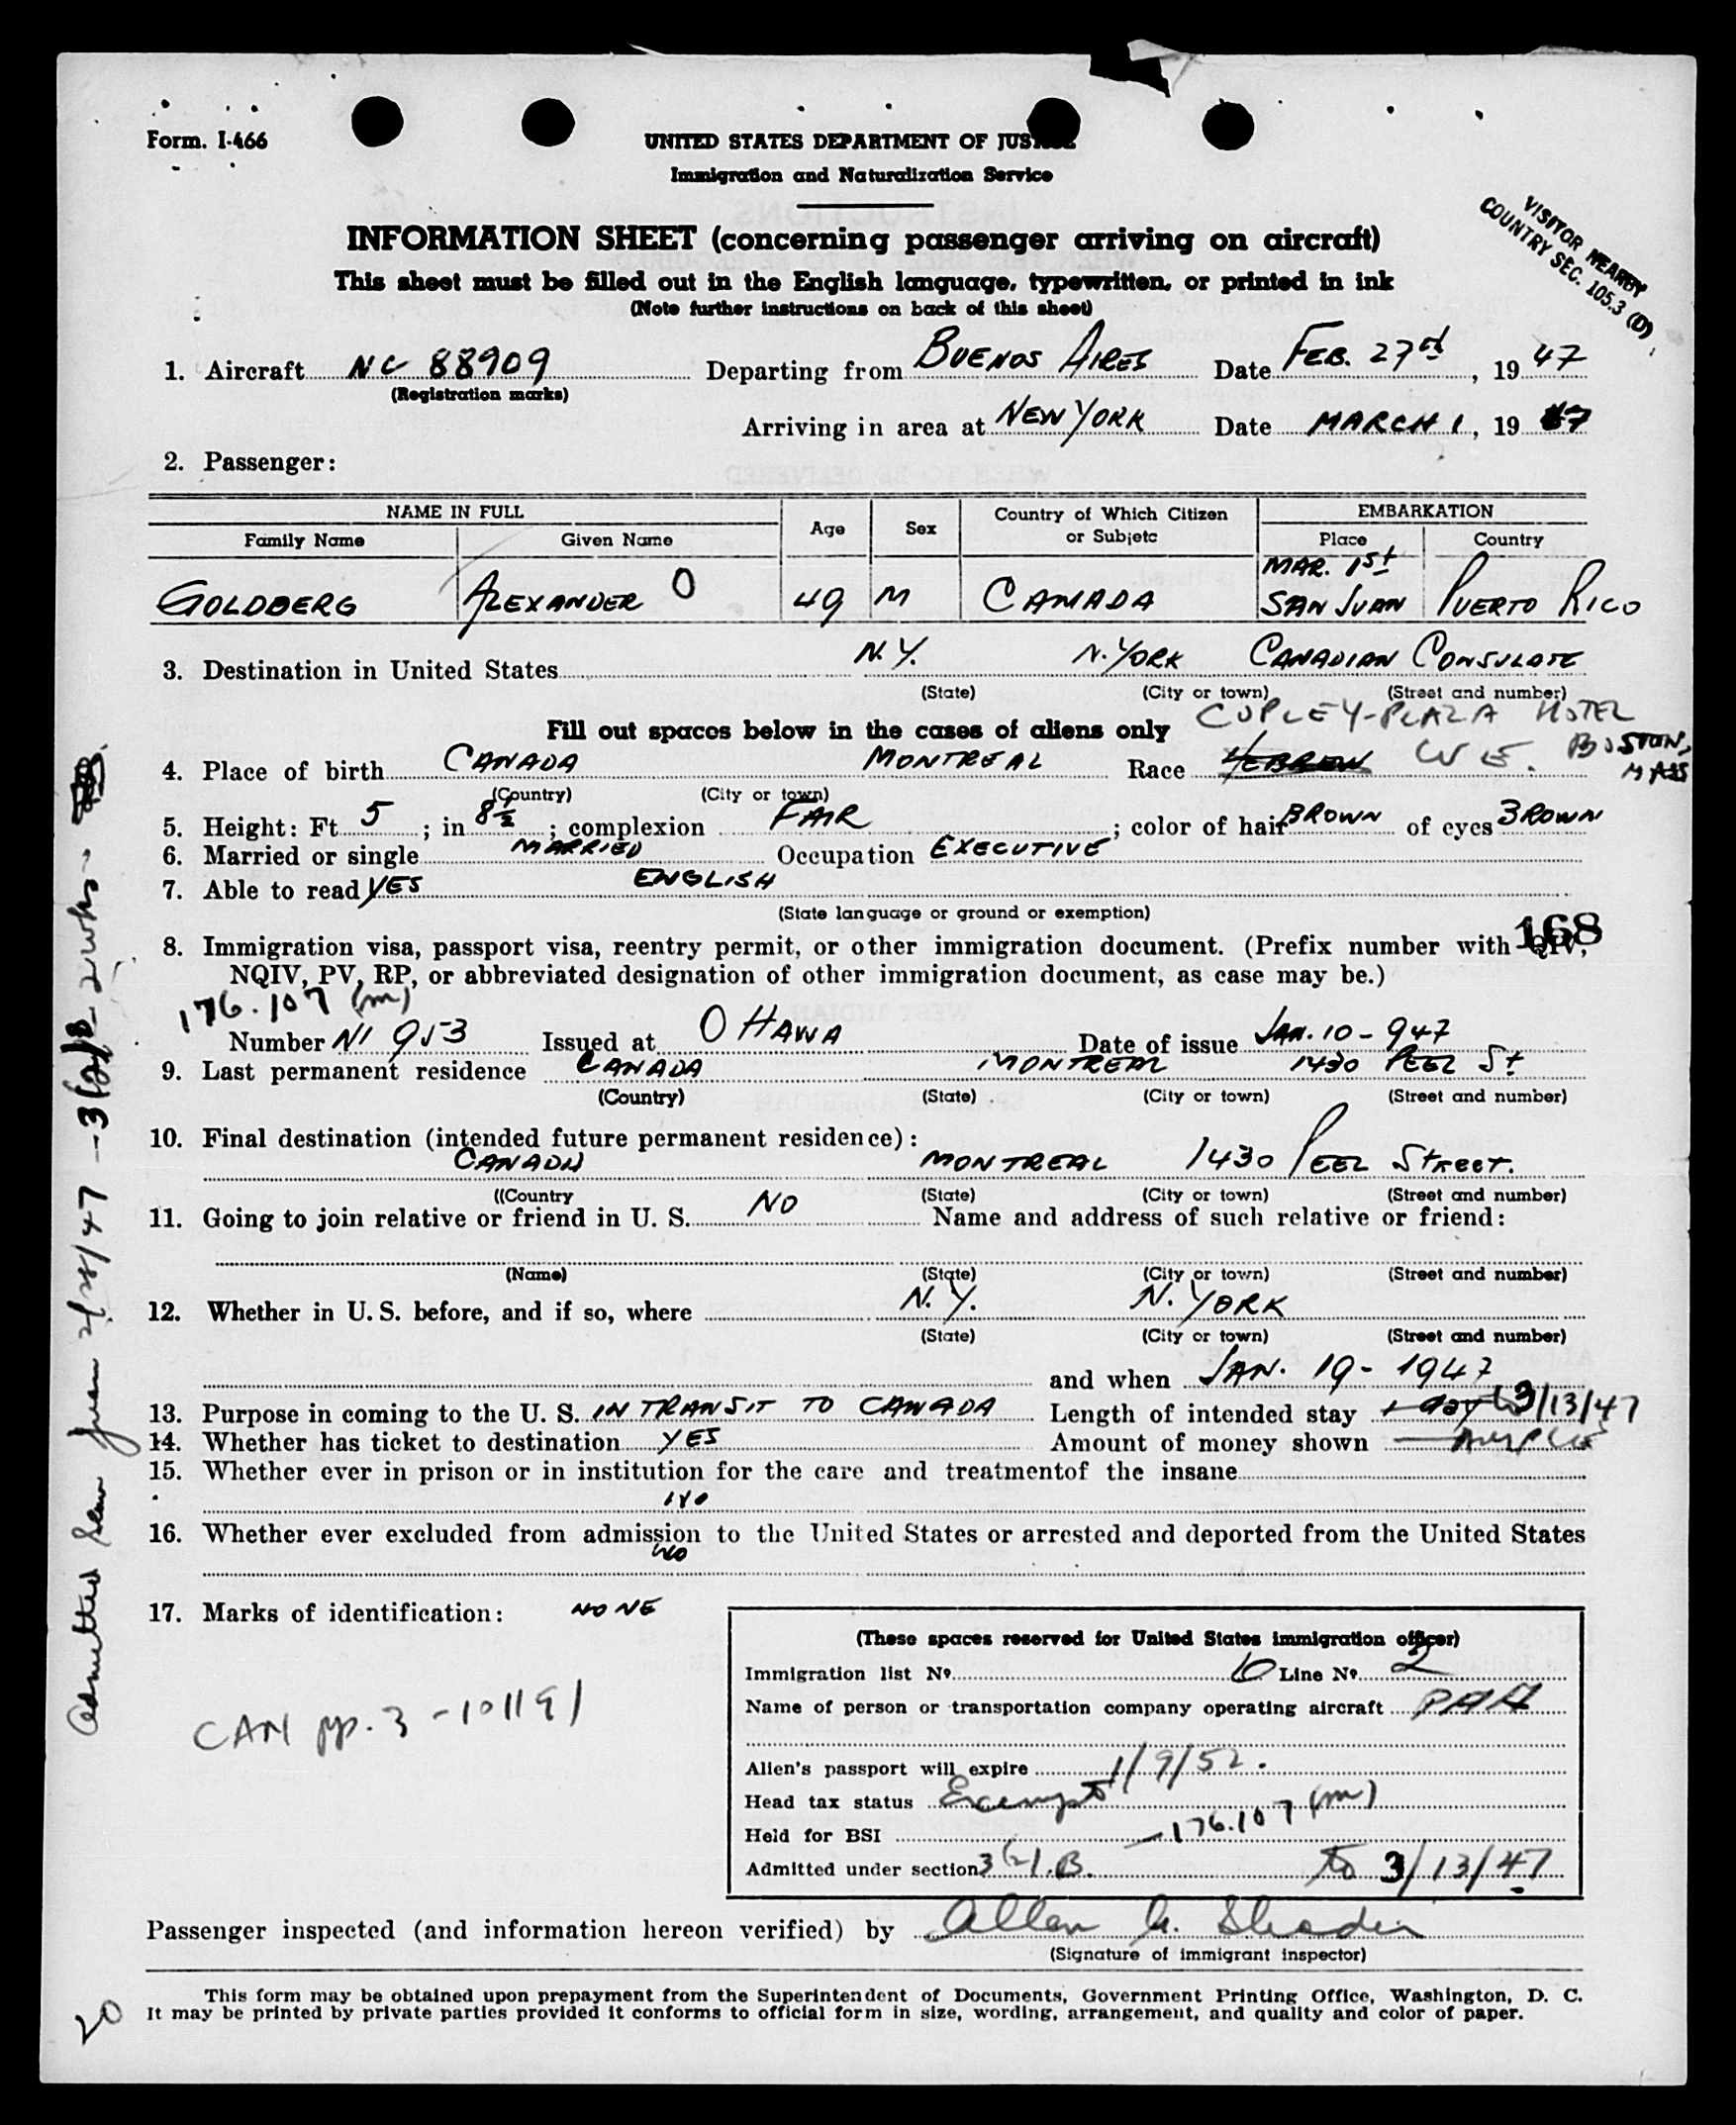 Form. I-466
UNITED STATES DEPARTMENT OF JUSTICE
Immigration and Naturalization Service
INFORMATION SHEET (concerning passenger arriving on aircraft)
This sheet must be filled out in the English language, typewritten, or printed in ink
(Note further instructions on back of this sheet)
VISITOR NEARBY
COUNTRY SEC. 105.3 (D)
1. Aircraft NC 88909 Departing from BUENOS AIRES Date FEB. 27th, 19 47
(Registration marks)
Arriving in area at NEW YORK Date MARCH 1, 19 47
2. Passenger:
NAME IN FULL Age Sex Country of Which Citizen or Subjetc EMBARKATION
Family Name Given Name Place Country
MAR. 1st
GOLDBERG ALEXANDER O 49 M CANADA SAN JUAN PUERTO RICO
3. Destination in United States N.Y. N. YORK CANADIAN CONSULATE
(State) (City or town) (Street and number)
Fill out spaces below in the cases of aliens only COPLEY-PLAZA HOTEL
BOSTON, MASS
4. Place of birth CANADA MONTREAL Race HEBREW
(Country) (City or town)
5. Height: Ft 5 ; in 8½ ; complexion FAIR ; color of hair BROWN of eyes BROWN
6. Married or single MARRIED Occupation EXECUTIVE
7. Able to read YES ENGLISH
(State language or ground or exemption)
168
8. Immigration visa, passport visa, reentry permit, or other immigration document. (Prefix number with QIV,
NQIV, PV, RP, or abbreviated designation of other immigration document, as case may be.)
176.107 (m)
Number NI 953 Issued at OTTAWA Date of issue JAN. 10-947
9. Last permanent residence CANADA MONTREAL 1430 PEEL St
(Country) (State) (City or town) (Street and number)
10. Final destination (intended future permanent residence):
CANADA MONTREAL 1430 PEEL Street.
((Country (State) (City or town) (Street and number)
11. Going to join relative or friend in U. S. NO Name and address of such relative or friend:
(Name) (State) (City or town) (Street and number)
12. Whether in U. S. before, and if so, where N. Y. N. YORK
(State) (City or town) (Street and number)
and when JAN. 19-1947
13. Purpose in coming to the U. S. IN TRANSIT TO CANADA Length of intended stay 1 day to 3/13/47
14. Whether has ticket to destination YES Amount of money shown Ample
15. Whether ever in prison or in institution for the care and treatmentof the insane
NO
16. Whether ever excluded from admission to the United States or arrested and deported from the United States
NO
17. Marks of identification: NONE
CAN pp. 3-101191
(These spaces reserved for United States immigration officer)
Immigration list Nº 6 Line Nº 2
Name of person or transportation company operating aircraft PAA
Alien's passport will expire 1/9/52.
Head tax status Exempt 176.107 (m)
Held for BSI
Admitted under section 3(2)-B. to 3/13/47
Passenger inspected (and information hereon verified) by Allen G.
(Signature of immigrant inspector)
This form may be obtained upon prepayment from the Superintendent of Documents, Government Printing Office, Washington, D. C.
It may be printed by private parties provided it conforms to official form in size, wording, arrangement, and quality and color of paper.
20
Admitted San Juan 2/28/47 - 3(2)B 2 wks